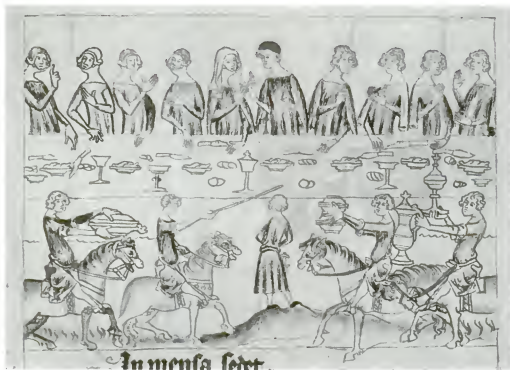 In mensa sedet.